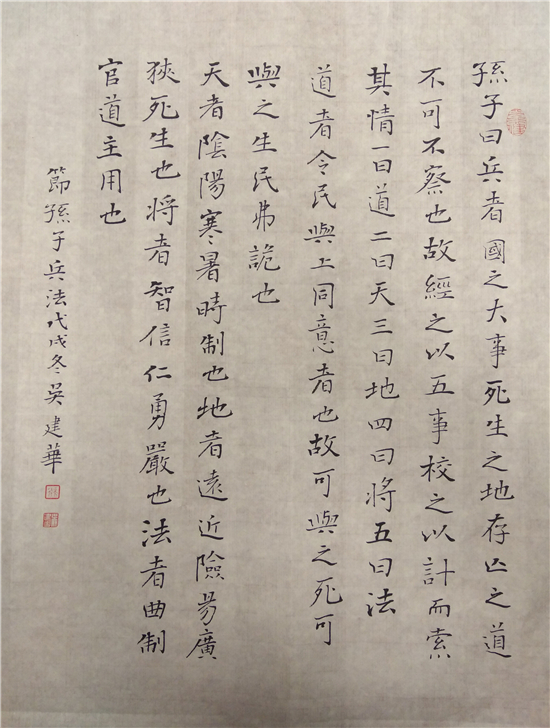 孫子曰兵者國之大事死生之地存亡之道
不可不察也故經之以五事校之以計而索
其情一曰道二曰天三曰地四曰将五曰法
道者令民與上同意者也故可與之死可
與之生民弗詭也
天者陰陽寒暑時制也地者遠近險易廣
狹死生也将者智信仁勇嚴也法者曲制
官道主用也
節孫子兵法戊戌冬吳建華